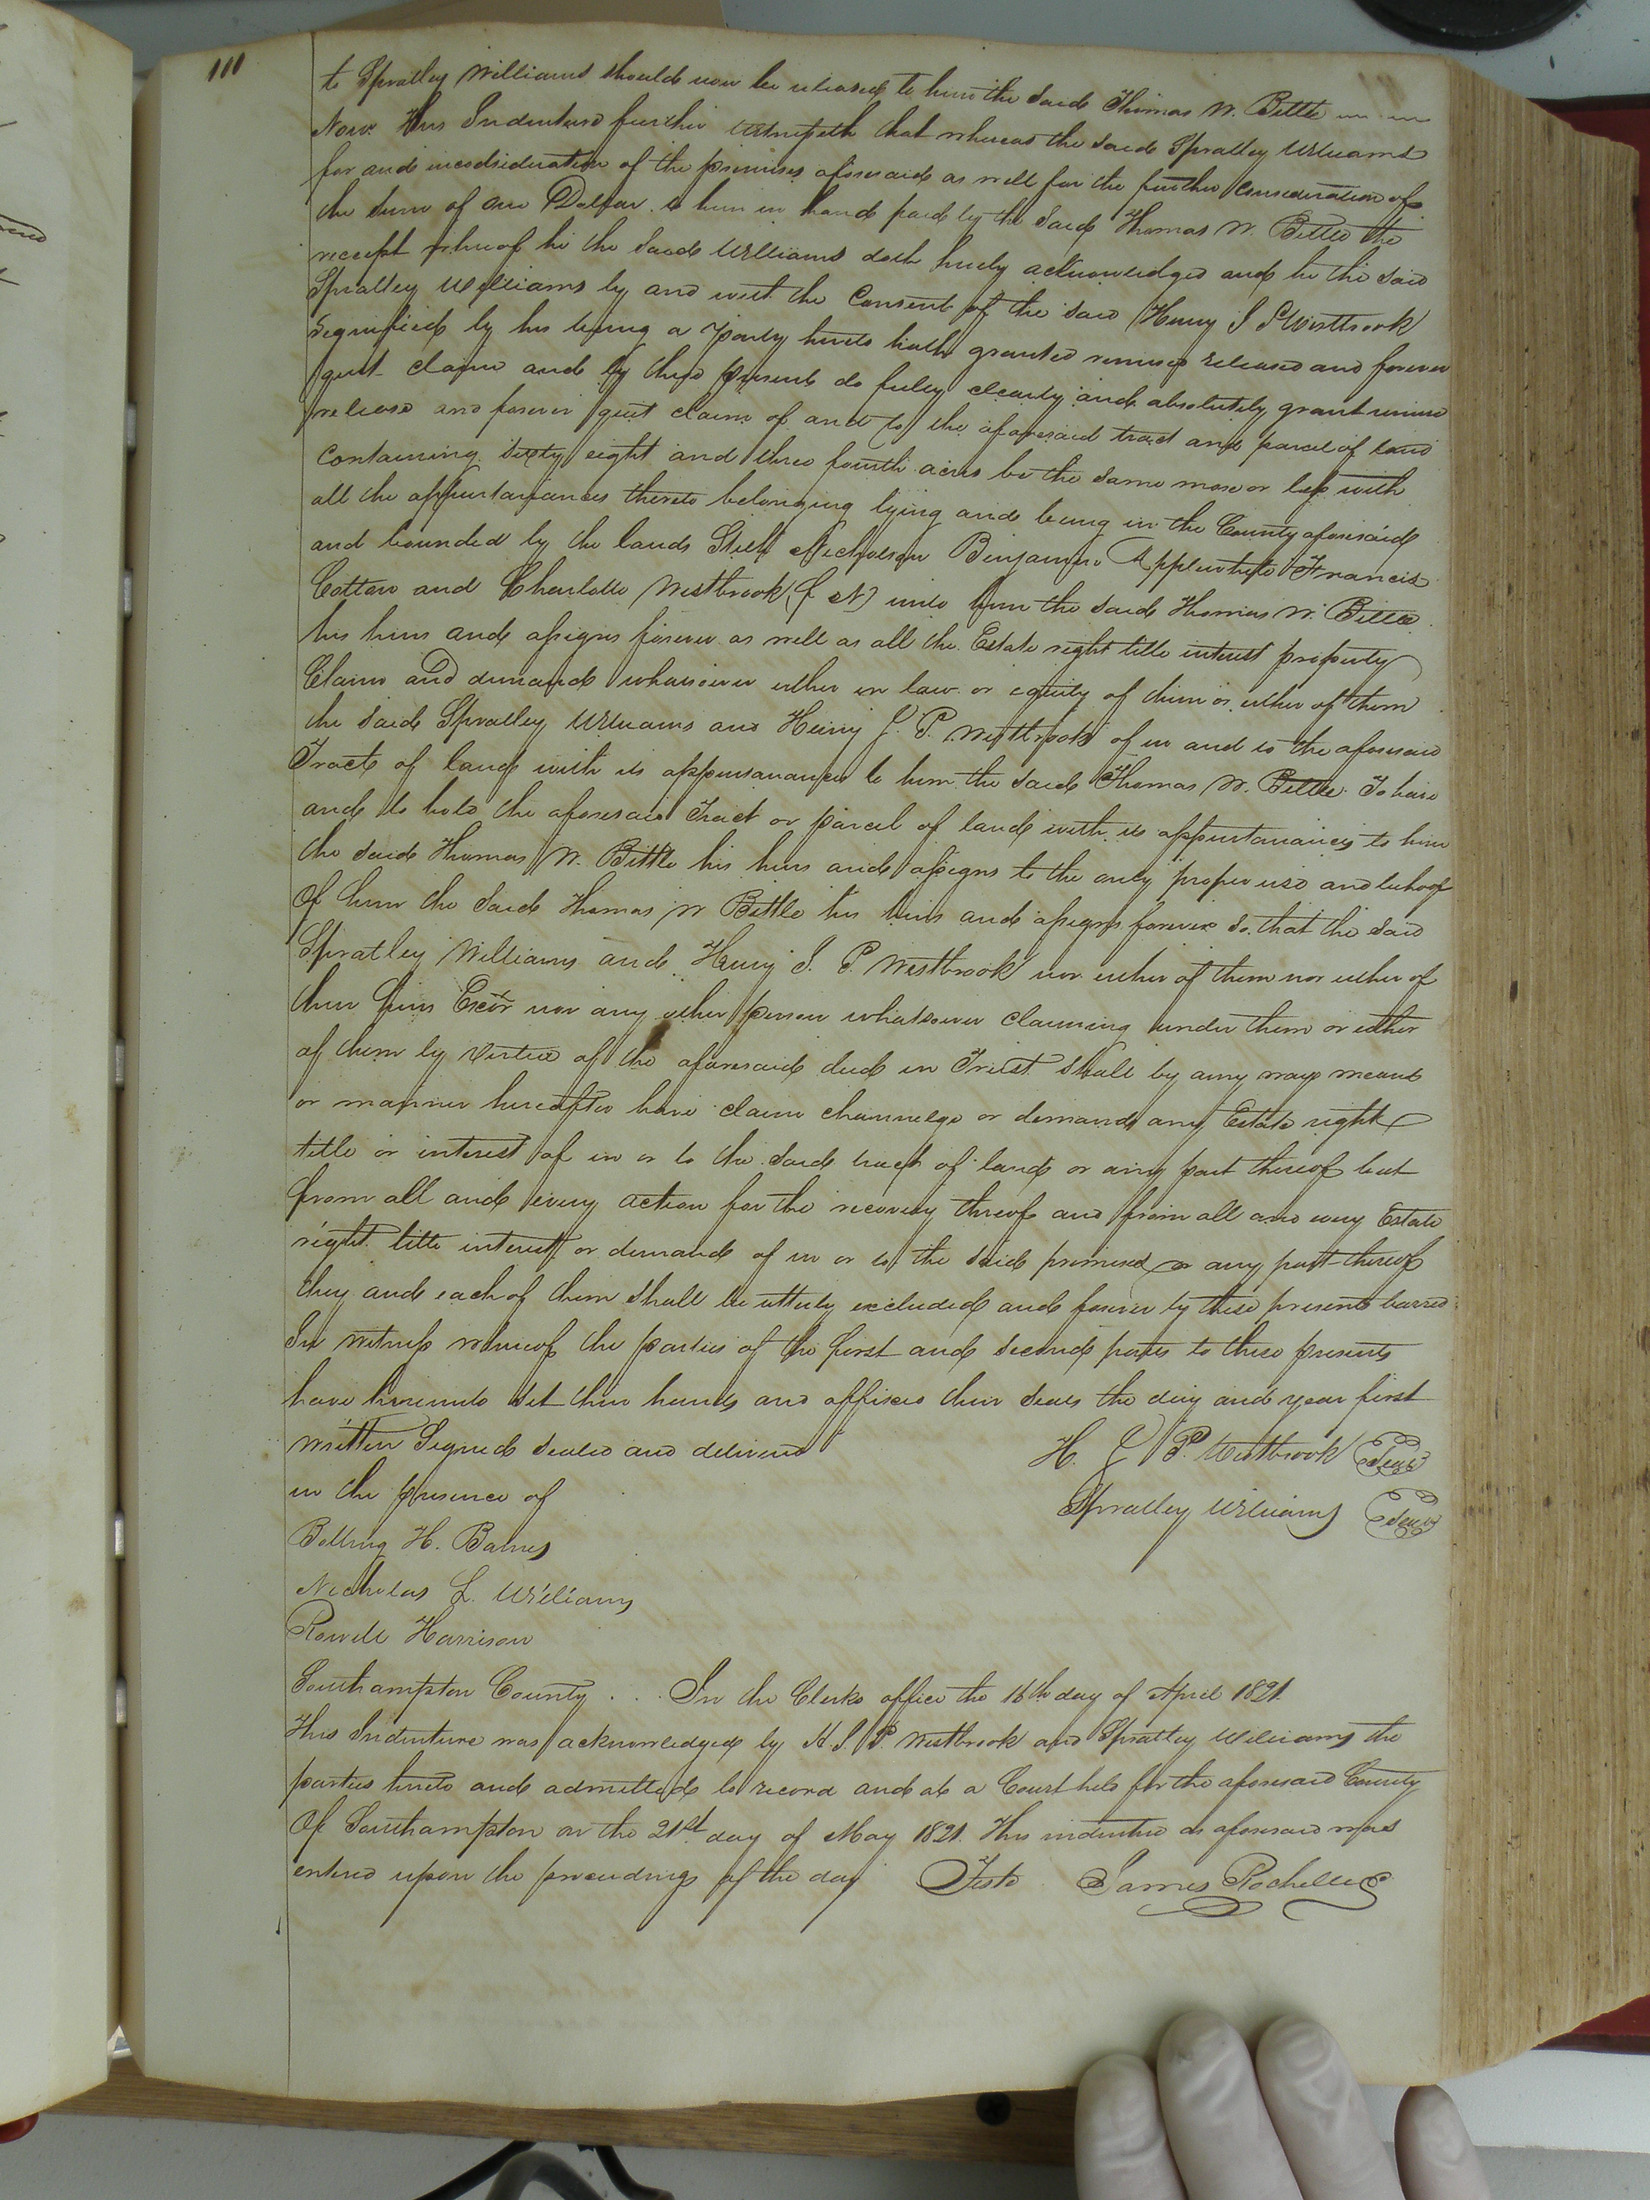 111
to Spratley Williams should now be released to him the said Thomas W. Bittle
Now This Indenture further Witnesseth that whereas the said Spratley Williams
for and inconsideration of the premises aforesaid as well for the further consideration of
the sum of one Dollar to him in hand paid by the said Thomas W. Bittle the
receipt whereof he the said Williams doth hereby acknowledge and he the said
Spratley Williams by and with the Consent of the said Henry J P Westbrook
signified by his being a party hereto hath granted remised released and forever
quit claim and by these present do fully clearly and absolutely grant remise
release and forever quit claim of and to the aforesaid tract and parcel of land
containing sixty eight and three fourth acres be the same more or less with
all the appurtanances thereto belonging lying and being in the County aforesaid
and bounded by the lands Stith Nicholson Benjamin Applewhite Francis
Cotten and Charlotte Westbrook unto him the said Thomas W. Bittle
his heirs and assigns forever as well as all the Estate right title interest property
Claim and demand whatsoever either in law or equity of them or either of them
the said Spratley Williams and Henry J. P. Westbrook of in and to the aforesaid
Tract of land with its appurtanances to him the said Thomas W. Bittle To have
and to hold the aforesaid Tract or parcel of land with its appurtanances to him
the said Thomas W. Bittle his heirs and assigns to the only proper use and behoof
Of him the said Thomas W Bittle his heirs and assigns forever so that the said
Spratley Williams and Henry J. P. Westbrook nor either of them nor either of
their heirs Excr nor any other person whatsoever claiming under them or either
of them by Virtue of the aforesaid deed in Trust shall by any ways means
or manner hereafter have claim channelge or demand any Estate right
title or interest of in or to the said tract of land or any part thereof but
from all and every action for the recovery thereof and from all and every Estate
right title interest or demand of in or to the said premises or any part thereof
they and each of them shall be utterly excluded and forever by these presents barred
In Witness whereof the parties of the first and second parts to these presents
have hereunto set their hands and affixed their seals the day and year first
written Signed sealed and delivered H. J P. Westbrook Seal
in the presence of Spratley Williams Seal
Bolling H. Barnes
Nicholas L. Williams
Rowell Harrison
Southampton County . . . In the Clerks office the 16th day of April 1821.
This Indenture was acknowledged by H. J. P. Westbrook and Spratley Williams the
parties hereto and admitted to record and at a Court held for the aforesaid County
Of Southampton on the 21st day of May 1821. This indenture as aforesaid was
entered upon the proceedings of the day Teste James Rochelle